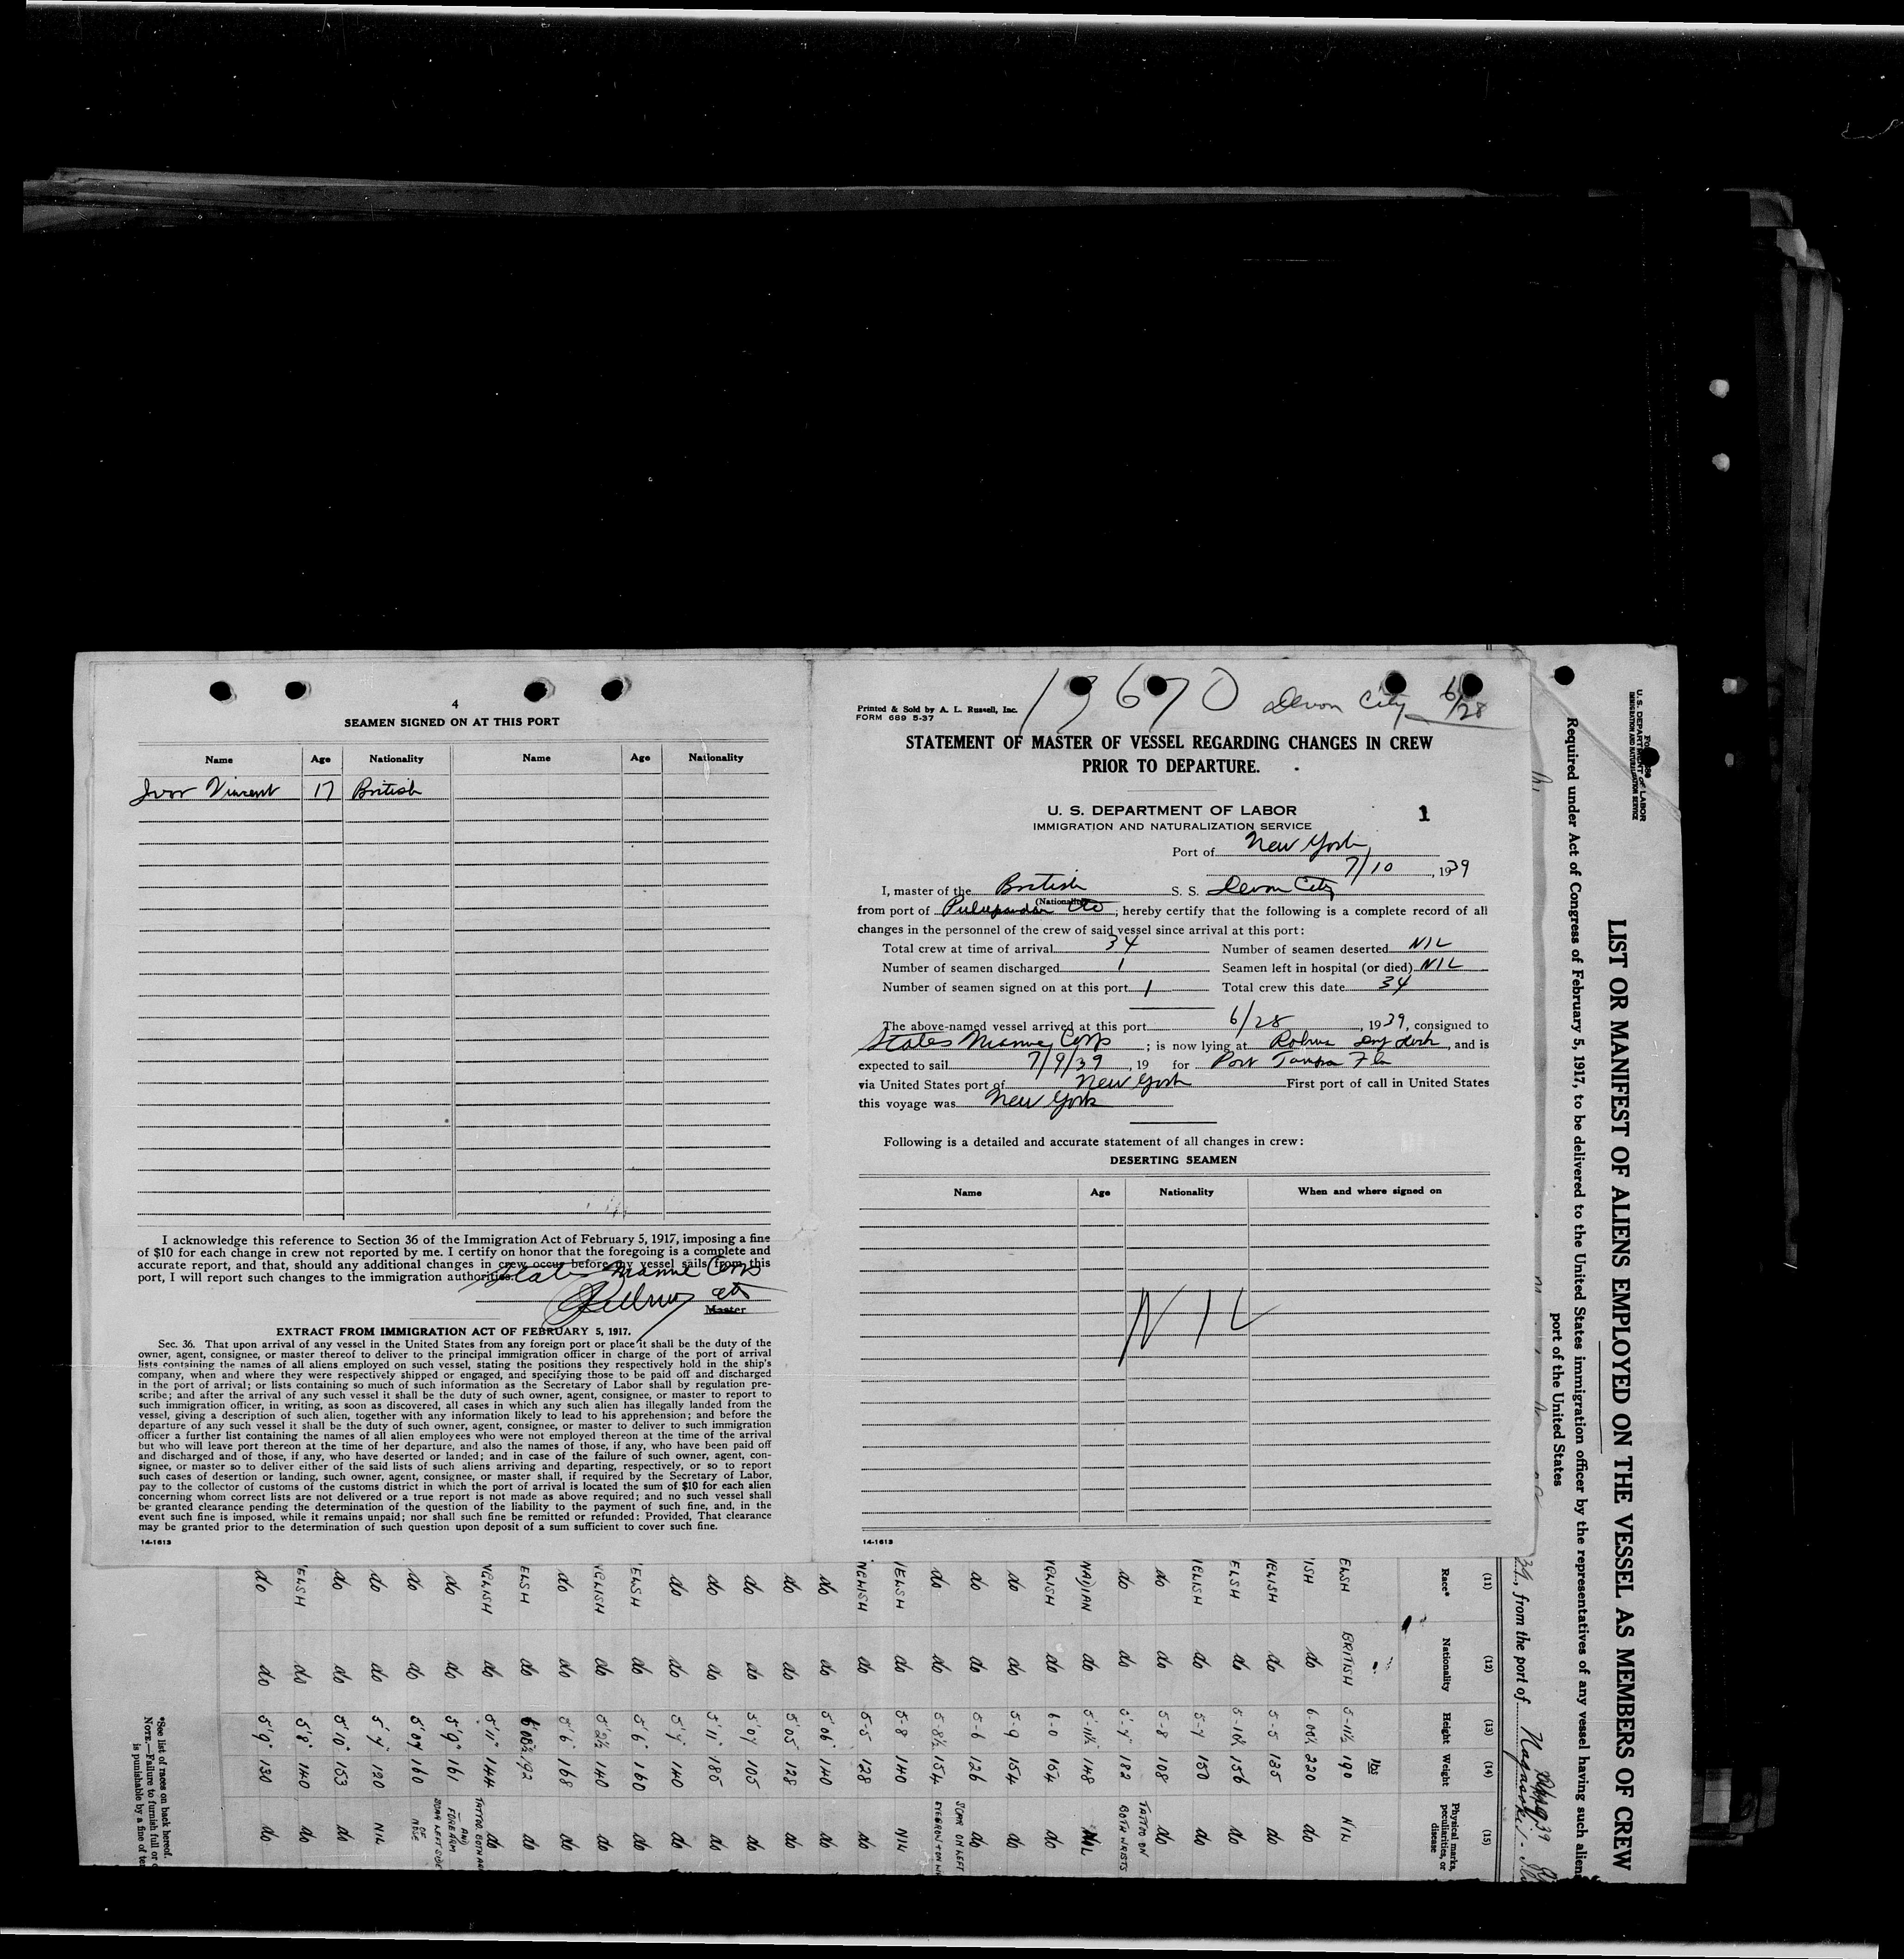 4
SEAMEN SIGNED ON AT THIS PORT
Name Age Nationality Name Age Nationality
Ivor Vincent 17 British
I acknowledge this reference to Section 36 of the Immigration Act of February 5, 1917, imposing a fine
of $10 for each change in crew not reported by me. I certify on honor that the foregoing is a complete and
accurate report, and that, should any additional changes in crew occur before my vessel sails from this
port, I will report such changes to the immigration authorities.
States Marine Corp
Master
EXTRACT FROM IMMIGRATION ACT OF FEBRUARY 5, 1917.
Sec. 36. That upon arrival of any vessel in the United States from any foreign port or place it shall be the duty of the
owner, agent, consignee, or master thereof to deliver to the principal immigration officer in charge of the port of arrival
lists containing the names of all aliens employed on such vessel, stating the positions they respectively hold in the ship's
company, when and where they were respectively shipped or engaged, and specifying those to be paid off and discharged
in the port of arrival; or lists containing so much of such information as the Secretary of Labor shall by regulation pre-
scribe; and after the arrival of any such vessel it shall be the duty of such owner, agent, consignee, or master to report to
such immigration officer, in writing, as soon as discovered, all cases in which any such alien has illegally landed from the
vessel, giving a description of such alien, together with any information likely to lead to his apprehension; and before the
departure of any such vessel it shall be the duty of such owner, agent, consignee, or master to deliver to such immigration
officer a further list containing the names of all alien employees who were not employed thereon at the time of the arrival
but who will leave port thereon at the time of her departure, and also the names of those, if any, who have been paid off
and discharged and of those, if any, who have deserted or landed; and in case of the failure of such owner, agent, con-
signee, or master so to deliver either of the said lists of such aliens arriving and departing, respectively, or so to report
such cases of desertion or landing, such owner, agent, consignee, or master shall, if required by the Secretary of Labor,
pay to the collector of customs of the customs district in which the port of arrival is located the sum of $10 for each alien
concerning whom correct lists are not delivered or a true report is not made as above required; and no such vessel shall
be granted clearance pending the determination of the question of the liability to the payment of such fine, and, in the
event such fine is imposed, while it remains unpaid; nor shall such fine be remitted or refunded: Provided, That clearance
may be granted prior to the determination of such question upon deposit of a sum sufficient to cover such fine.
14-1613
19670 Devon City 6/28
Printed & Sold by A. L. Russell, Inc.
FORM 689 5-37
STATEMENT OF MASTER OF VESSEL REGARDING CHANGES IN CREW
PRIOR TO DEPARTURE.
U. S. DEPARTMENT OF LABOR
1
IMMIGRATION AND NATURALIZATION SERVICE
Port of New York
7/10, 1939
I, master of the British S. S. Devon City
(Nationality)
from port of ; hereby certify that the following is a complete record of all
changes in the personnel of the crew of said vessel since arrival at this port:
Total crew at time of arrival 34 Number of seamen deserted NIL
Number of seamen discharged 1 Seamen left in hospital (or died) NIL
Number of seamen signed on at this port 1 Total crew this date 34
The above-named vessel arrived at this port 6/28, 1939, consigned to
States Marine Corp; is now lying at Dry dock, and is
expected to sail 7/9/39, 19 for Port Tampa Fla
via United States port of New York First port of call in United States
this voyage was New York
Following is a detailed and accurate statement of all changes in crew:
DESERTING SEAMEN
Name Age Nationality When and where signed on
NIL
14-1613
U. S. DEPARTMENT OF LABOR
IMMIGRATION AND NATURALIZATION SERVICE
LIST OR MANIFEST OF ALIENS EMPLOYED ON THE VESSEL AS MEMBERS OF CREW
Required under Act of Congress of February 5, 1917, to be delivered to the United States immigration officer by the representatives of any vessel having such aliens
port of the United States
39, from the port of
(11) (12) (13) (14) (15)
Race* Nationality Height Weight Physical marks, peculiarities, or disease
lbs
ELSH BRITISH 5-11½ 190 NIL
ISH do 6-00½ 220 do
IGLISH do 5-5 135 do
ELSH do 5-10½ 156 do
IGLISH do 5-7 150 do
do do 5-8 108 do
do do 5'-7" 182 TATTOO ON BOTH WRISTS
NADIAN do 5'-11½ 148 NIL
NGLISH do 6-0 164 do
do do 5-9 154 do
do do 5-6 126 do
do do 5-8½ 154 SCAR ON LEFT EYEBROW
IELSH do 5-8 140 NIL
NGLISH do 5-5 128 do
do do 5'06" 140 do
do do 5'05" 128 do
do do 5'07 105 do
do do 5'11" 185 do
do do 5'7" 140 do
ELSH do 5'6" 160 do
NGLISH do 5'2½ 140 do
do do 5'6" 168 do
ELSH do 6'00½ 192 do
NGLISH do 5'11" 144 do
do do 5'9" 161 TATTOO BOTH AND FOREARM
do do 5'07 160 SCAR LEFT SIDE OF NOSE
do do 5'7" 120 NIL
do do 5'10" 153 do
ELSH do 5'8" 140 do
do do 5'9" 130 do
*See list of races on back hereof.
NOTE.—Failure to furnish full or
is punishable by a fine of